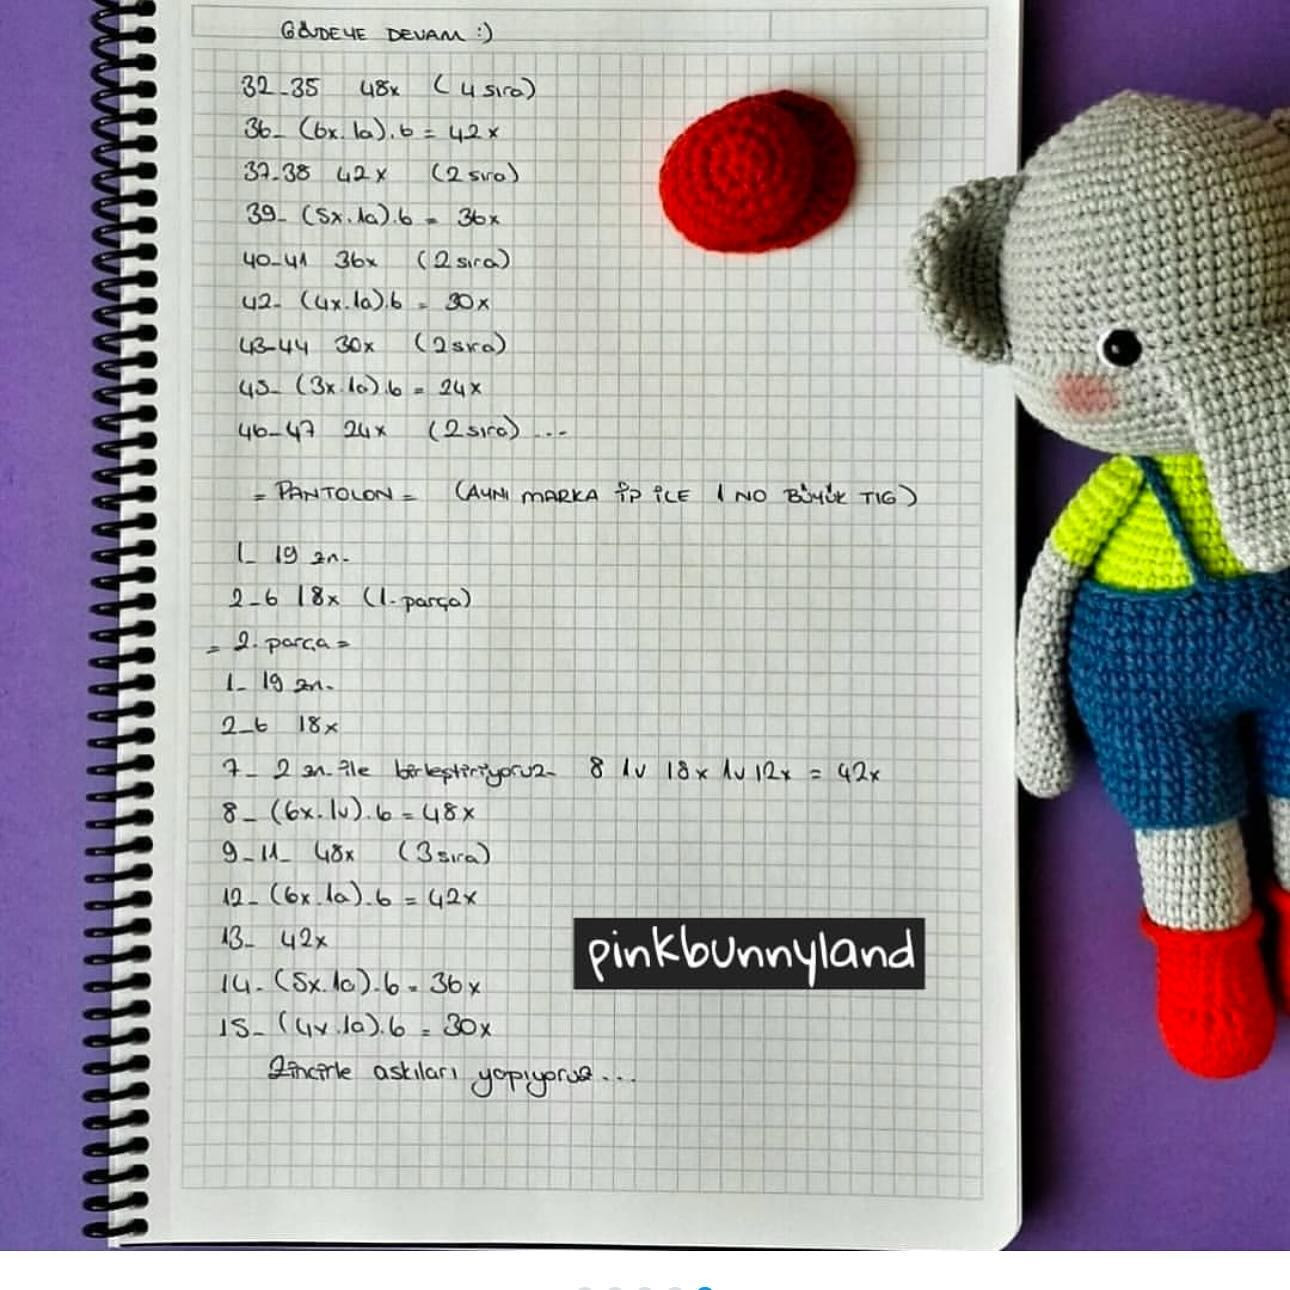 GÖVDEYE DEVAM :)
32-35 48x (4 sıra)
36- (6x.1a).6 = 42x
37-38 42x (2 sıra)
39- (5x.1a).6 = 36x
40-41 36x (2 sıra)
42- (4x.1a).6 = 30x
43-44 30x (2 sıra)
45- (3x.1a).6 = 24x
46-47 24x (2 sıra) ...
= PANTOLON = (AYNI MARKA İP İLE 1 NO BÜYÜK TIG)
1- 19 zn.
2-6 18x (1.parça)
= 2. parça =
1- 19 zn.
2-6 18x
7- 2 zn. ile birleştiriyoruz- 8 1v 18x 1v 12x = 42x
8- (6x.1v).6 = 48x
9-11- 48x (3 sıra)
12- (6x.1a).6 = 42x
13- 42x
14- (5x.1a).6 = 36x
15- (4x.1a).6 = 30x
Zincirle askıları yapıyoruz...
pinkbunnyland